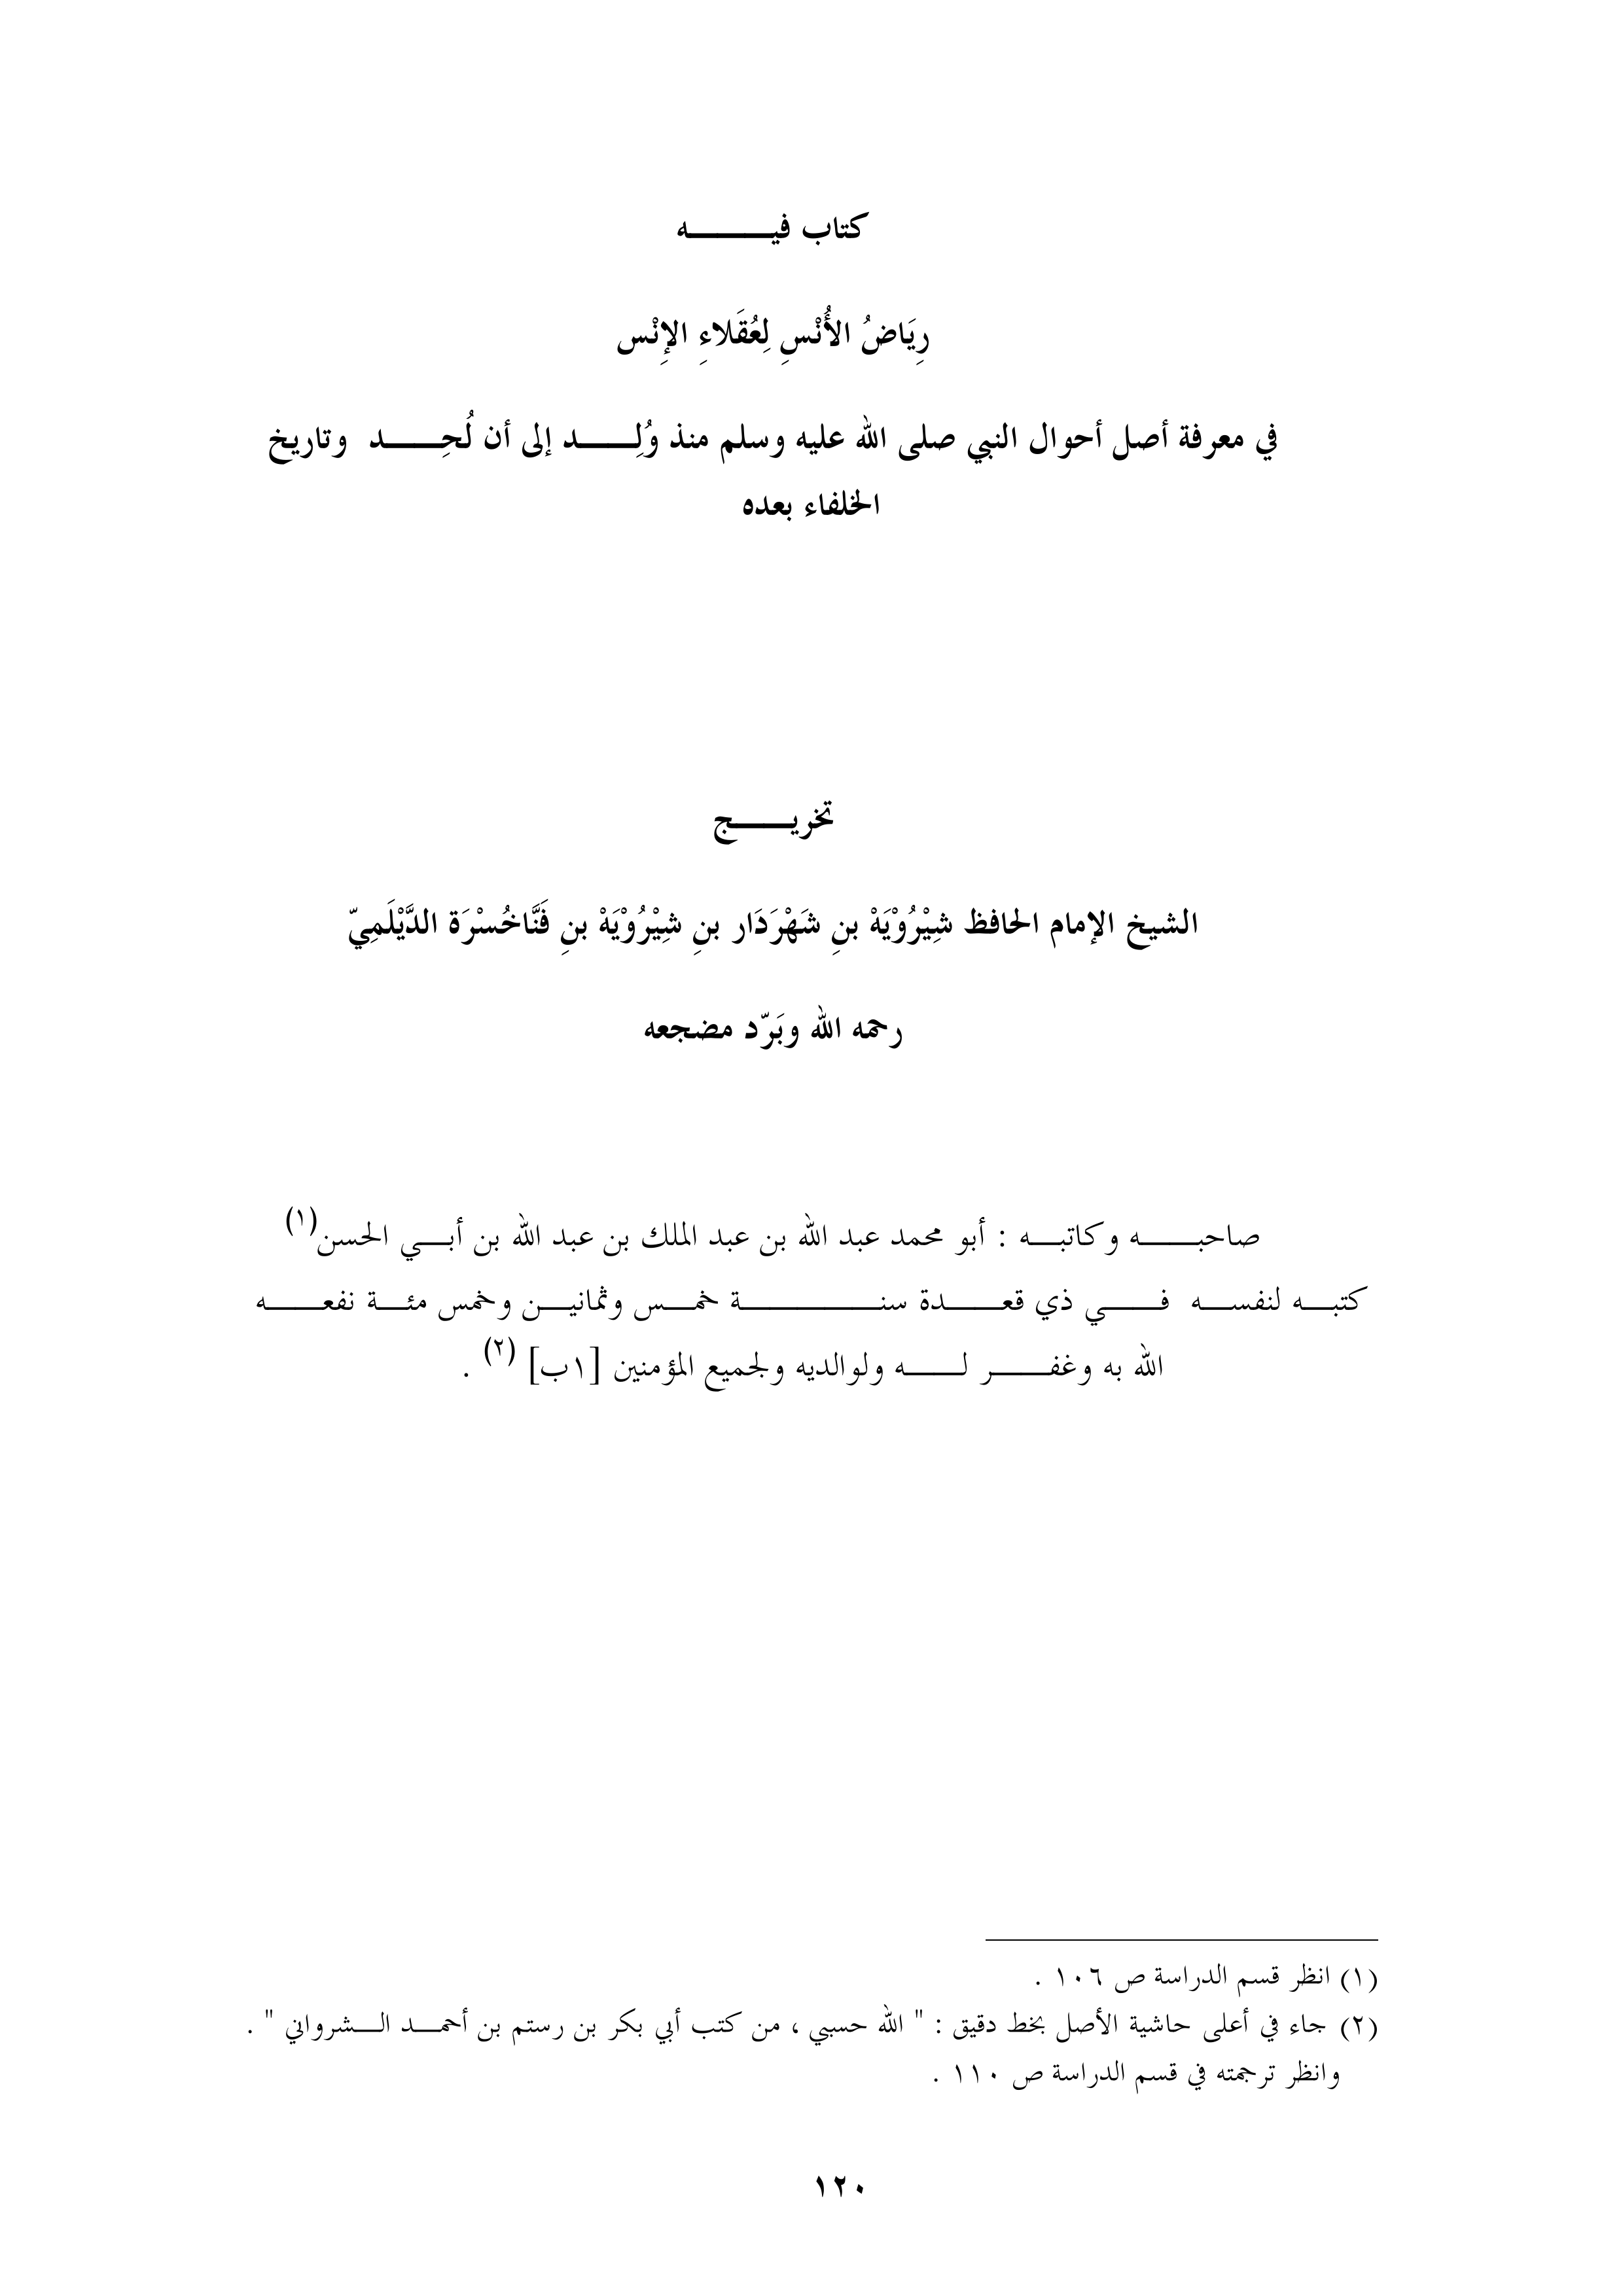 كتاب فيـــــــــــه
رِيَاضُ الأُنْسِ لِعُقَلاءِ الإِنْس
في معرفة أصل أحوال النبي صلى الله عليه وسلم منذ وُلِـــــــد إلى أن لُحِـــــــد وتاريخ
الخلفاء بعده
تخريـــــــج
الشيخ الإمام الحافظ شِيْرُوْيَهْ بنِ شَهْرَدَار بنِ شِيْرُوْيَهْ بنِ فَنَّاخُسْرَة الدَّيْلَمِيّ
رحمه الله وبَرّد مضجعه
صاحبـــــــه وكاتبـــه : أبو محمد عبد الله بن عبد الملك بن عبد الله بن أبـــي الحسن(١)
كتبـــه لنفســـه فـــــي ذي قعـــــدة سنـــــــــــــة خمـــس وثمانيـــن وخمس مئـــة نفعـــــــه
الله به وغفـــــــر لـــــــه ولوالديه ولجميع المؤمنين [١ب] (٢) .
(١) انظر قسم الدراسة ص ١٠٦ .
(٢) جاء في أعلى حاشية الأصل بخط دقيق : " الله حسبي ، من كتب أبي بكر بن رستم بن أحمـــد الـــشرواني " .
وانظر ترجمته في قسم الدراسة ص ١١٠ .
١٢٠